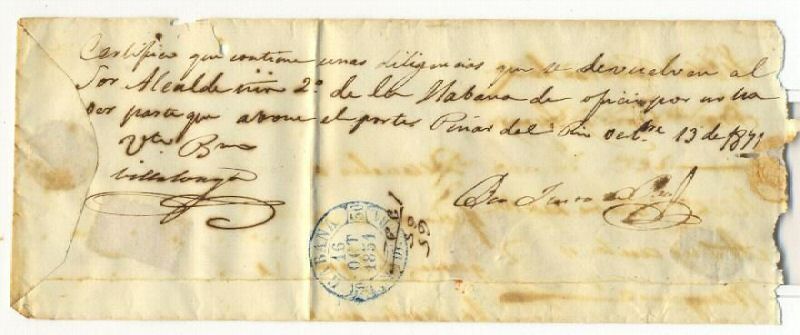 Certifico que contiene unas diligencias que se devuelven al
Sor Alcalde 2º de la Habana de oficio por no ha
ver parte que abone el porte Pinar del Rio Octbre 13 de 1851
Vto Bno
Villalonga
HABANA
16
OCT
1851